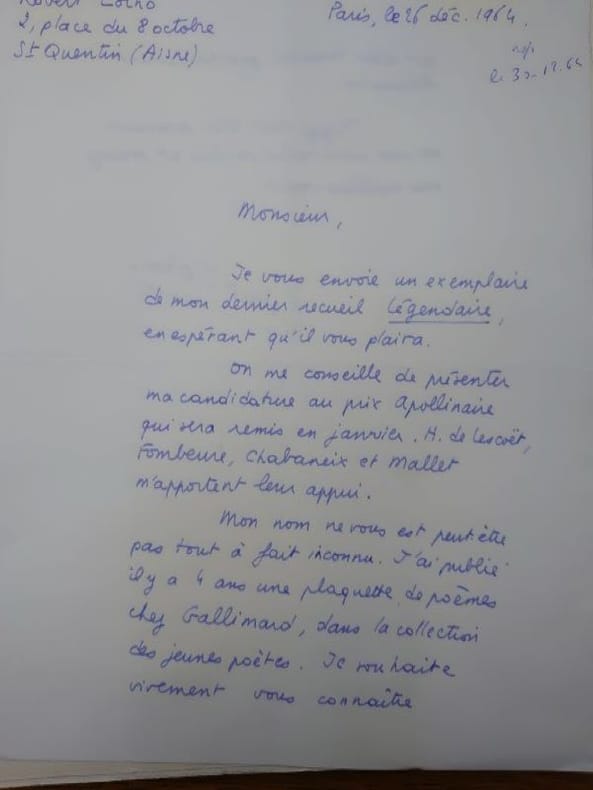 Robert Lorho
2, place du 8 octobre
St Quentin (Aisne)
Paris, le 26 déc. 1964.
le 30-12.64
Monsieur,
Je vous envoie un exemplaire
de mon dernier recueil Légendaire,
en espérant qu'il vous plaira.
On me conseille de présenter
ma candidature au prix Apollinaire
qui sera remis en janvier. H. de Lescoët,
Fombeure, Chabaneix et Mallet
m'apportent leur appui.
Mon nom ne vous est peut être
pas tout à fait inconnu. J'ai publié
il y a 4 ans une plaquette de poèmes
chez Gallimard, dans la collection
des jeunes poètes. Je souhaite
vivement vous connaître